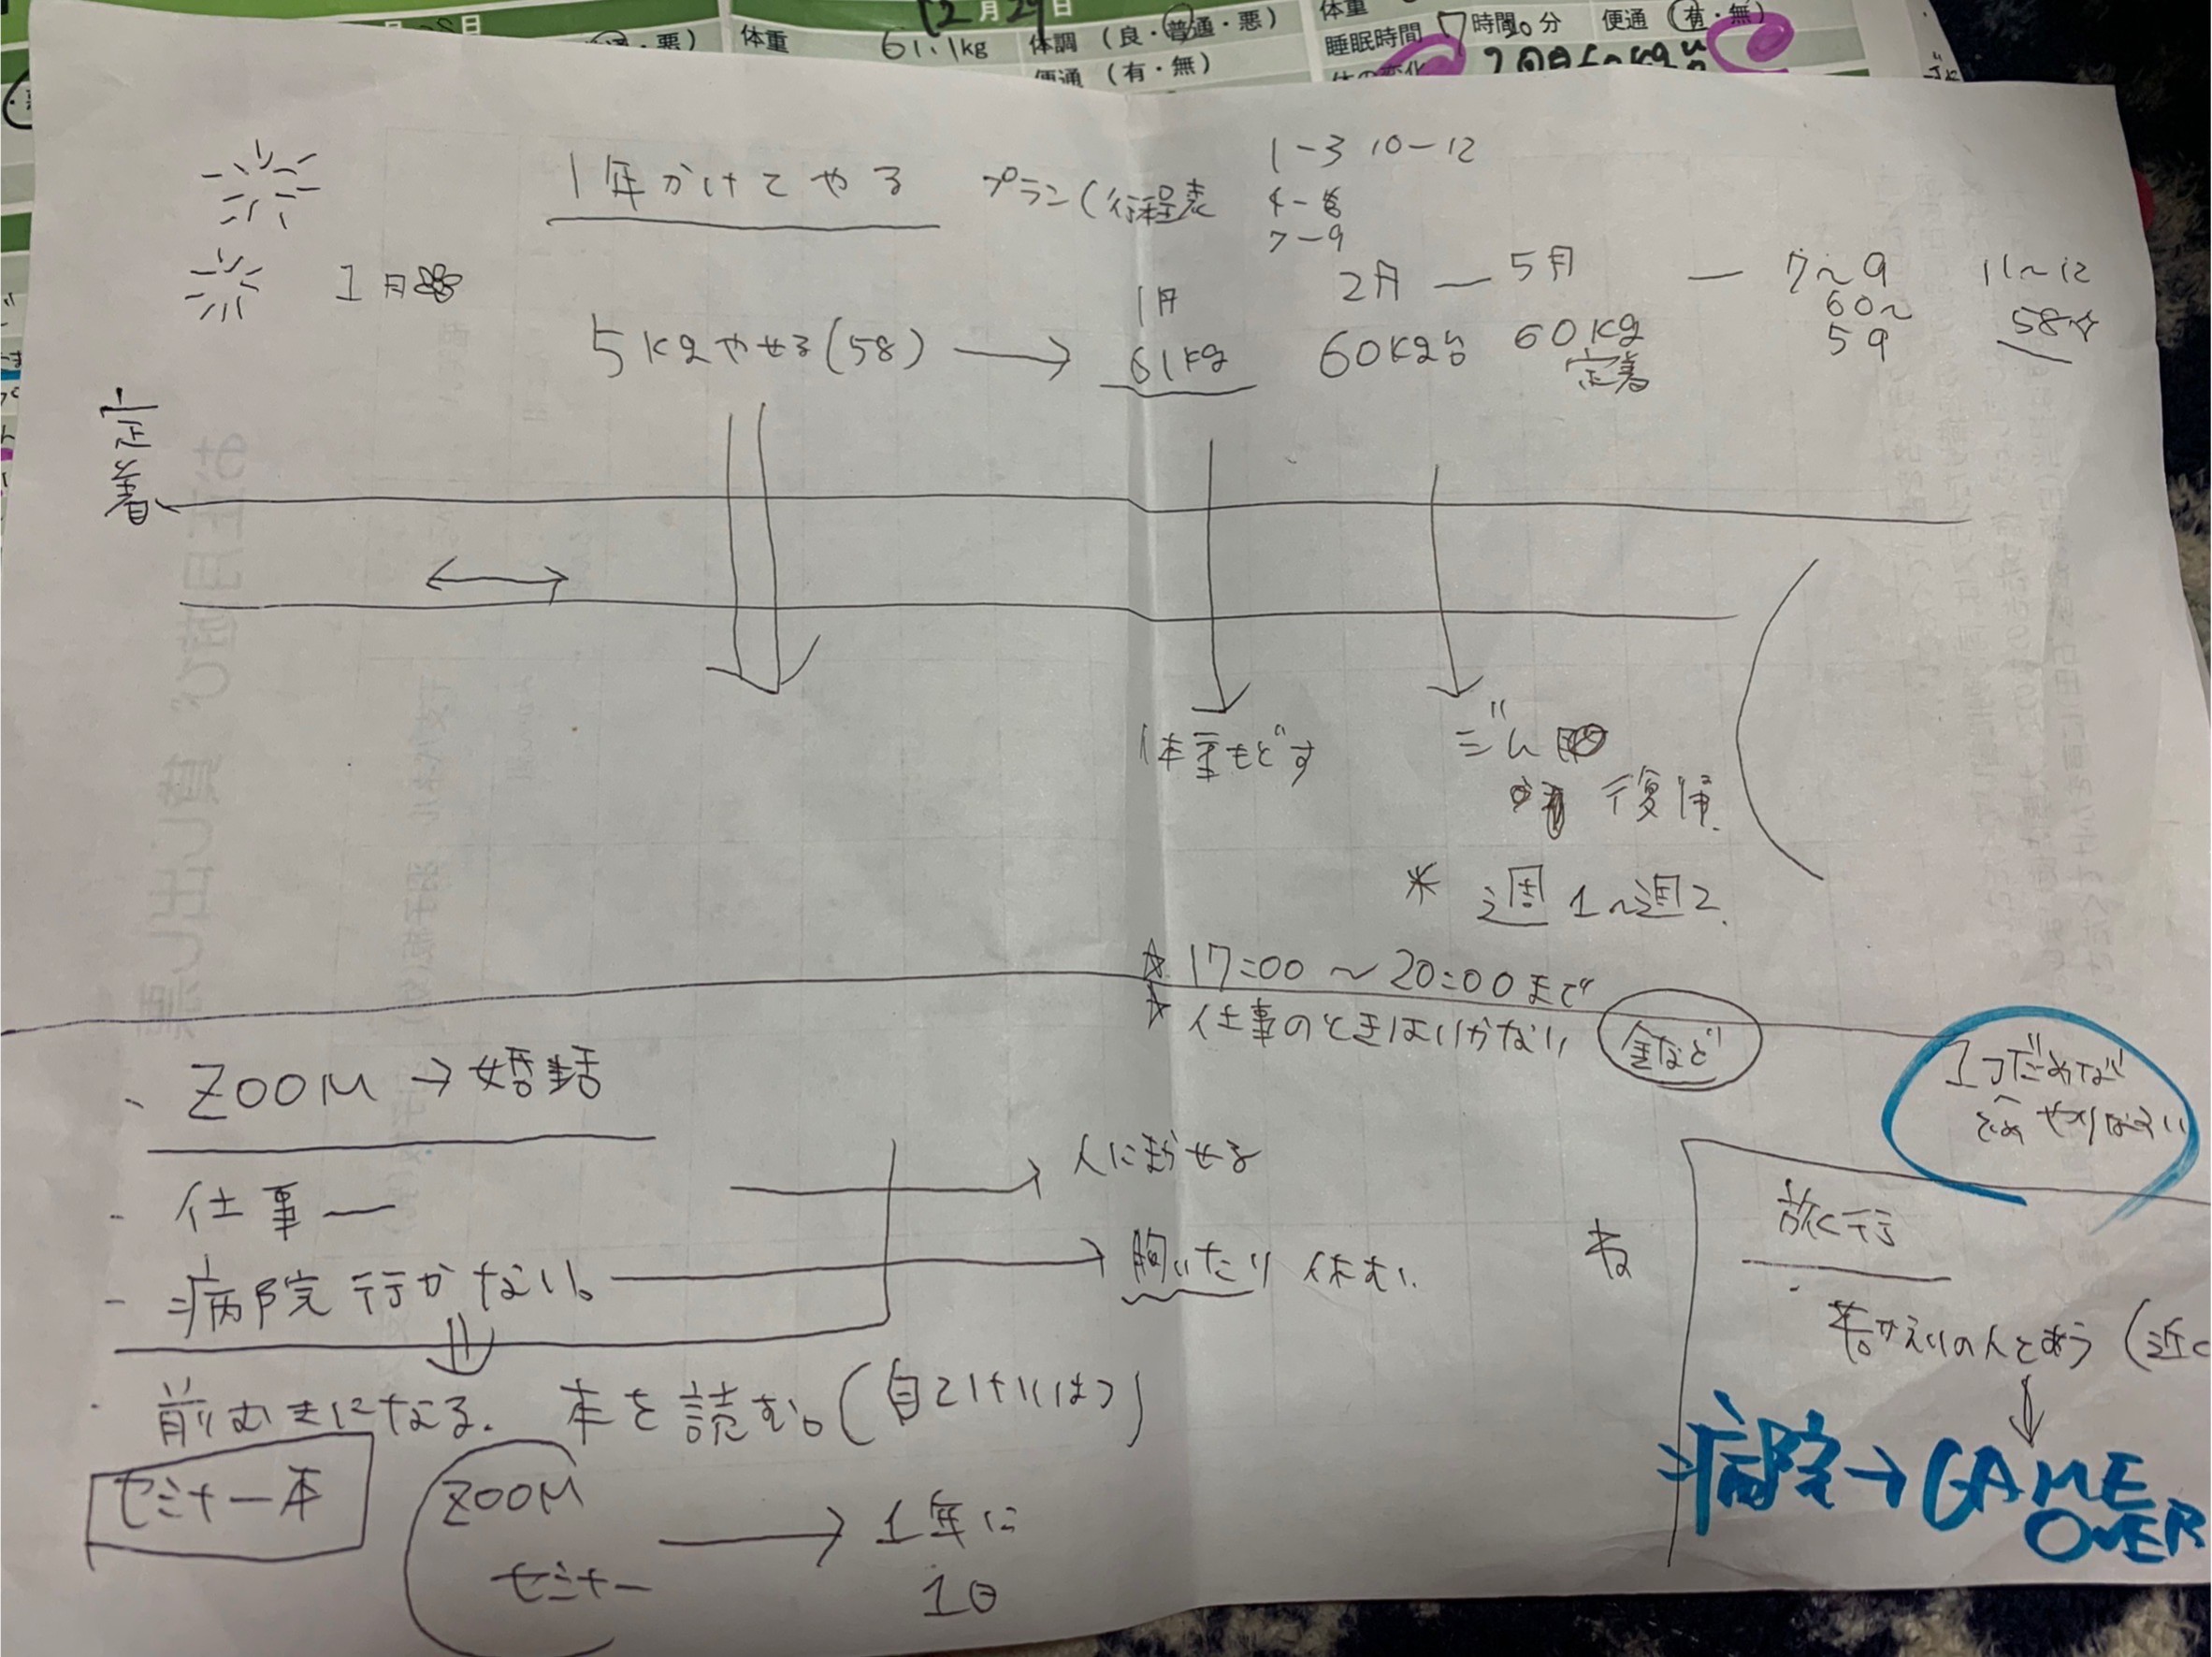 12月29日
・悪)
体重 61.1kg
体調 (良・普通・悪)
便通 (有・無)
体重
睡眠時間 7時間 分
便通 (有・無)
1年かけてやる
プラン(行程表
1-3 10-12
4-6
7-9
1月
5kgやせる(58)
1月
61kg
2月 — 5月 — 7~9 11~12
60kg台 60kg 60~ 58☆
定着 59
定着
体重もどす
ジム
復帰
* 週1~週2
☆ 17:00 ~ 20:00まで
☆ 仕事のときはいかない 金など
・ZOOM → 婚活
- 仕事 — → 人にまかせる
- 病院行かない。 → 胸いたい 休む
・前むきになる. 本を読む。(自己けいはつ)
セミナー本
ZOOM
セミナー → 1年に
1日
旅行
の人とあう (近く
病院→GAME
OVER